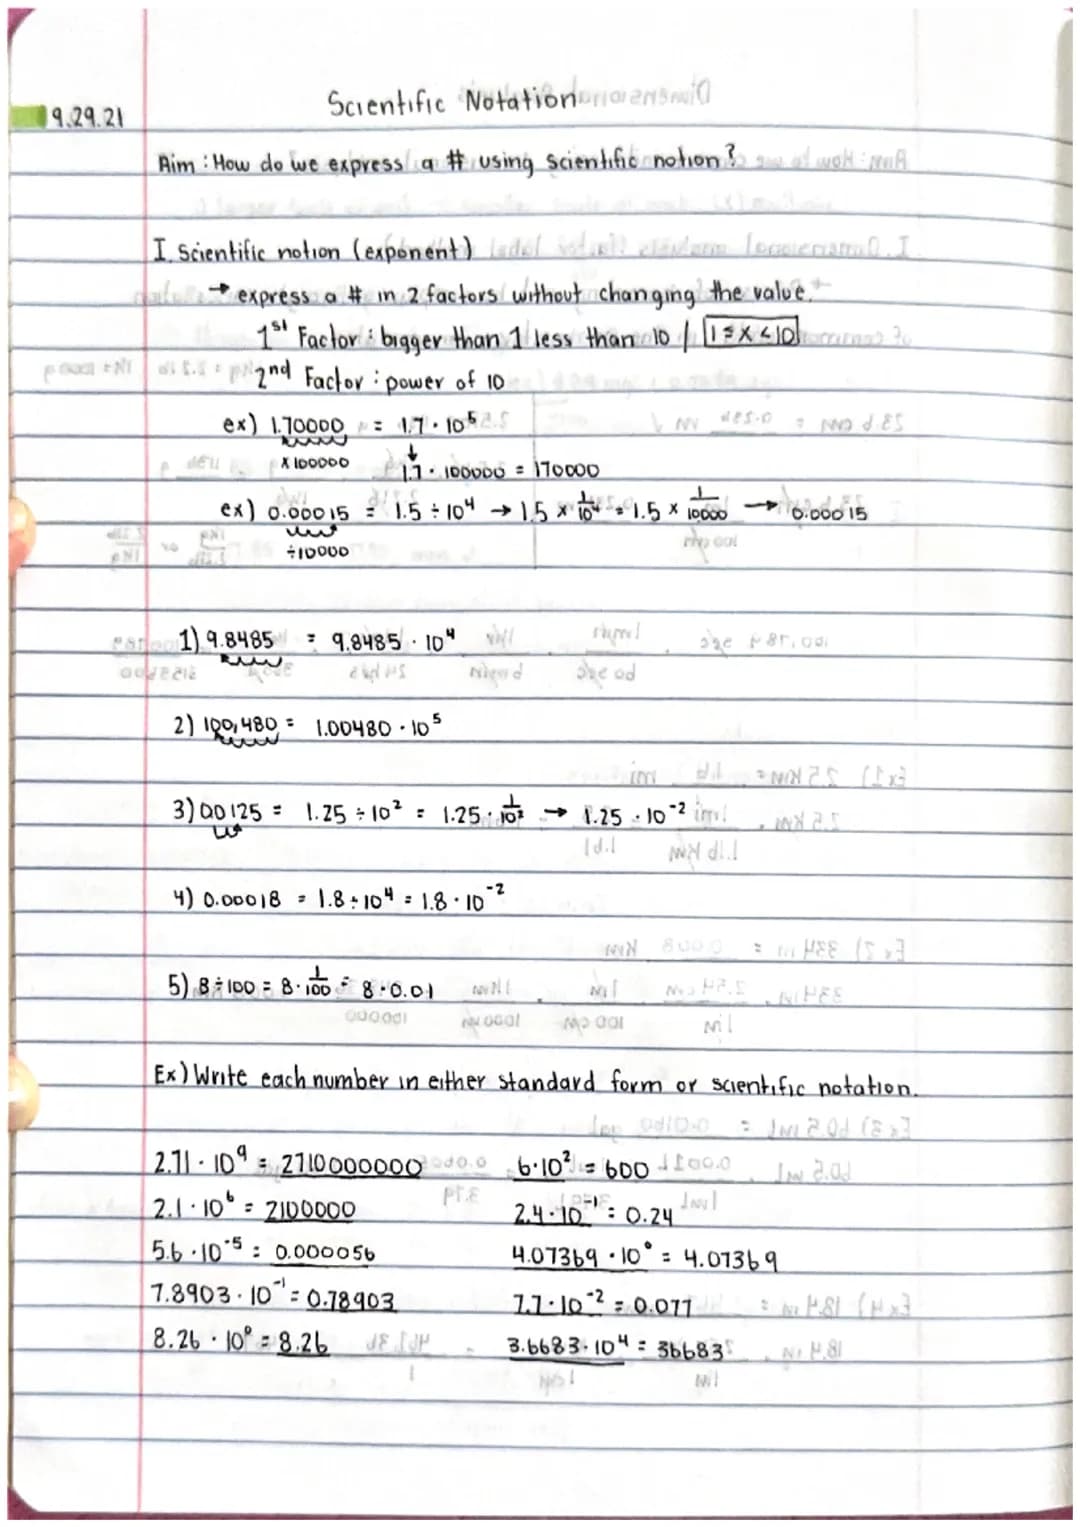 Scientific Notation
9.29.21
Aim : How do we express a # using scientific notion?
I. Scientific notion (exponent)
→ express a # in 2 factors without changing the value.
1st Factor : bigger than 1 less than 10 / 1 ≤ x < 10
2nd Factor : power of 10
ex) 1.70000 = 1.7 · 10⁵
x 100000 ↓
1.7 · 100000 = 170000
ex) 0.00015 = 1.5 ÷ 10⁴ → 1.5 x 1/10⁴ = 1.5 x 1/10000 → 0.00015
÷10000
1) 9.8485 = 9.8485 · 10⁴
2) 100,480 = 1.00480 · 10⁵
3) 00125 = 1.25 ÷ 10² = 1.25 · 1/10² → 1.25 · 10⁻²
4) 0.00018 = 1.8 ÷ 10⁴ = 1.8 · 10⁻²
5) 8 ÷ 100 = 8 · 1/100 = 8 · 0.01
Ex) Write each number in either standard form or scientific notation.
2.71 · 10⁹ = 2710000000 6 · 10² = 600
2.1 · 10⁶ = 2100000 2.4 · 10⁻¹ = 0.24
5.6 · 10⁻⁵ = 0.000056 4.07369 · 10⁰ = 4.07369
7.8903 · 10⁻¹ = 0.78903 7.7 · 10⁻² = 0.077
8.26 · 10⁰ = 8.26 3.6683 · 10⁴ = 36683